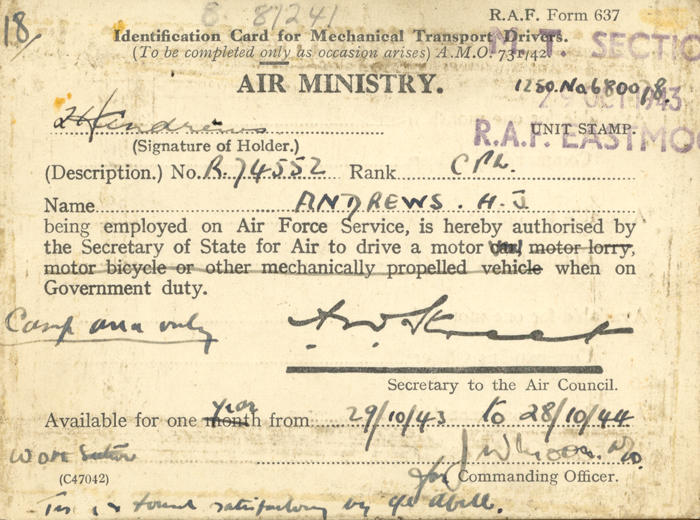 18/
R.A.F. Form 637
Identification Card for Mechanical Transport Drivers.
(To be completed only as occasion arises) A.M.O. 731/42
M.T. SECTIO
AIR MINISTRY.
1250.No6800/8.
29 OCT 1943
UNIT STAMP.
R.A.F. EASTMOO
(Signature of Holder.)
(Description.) No. R.74552 Rank CPL.
Name ANDREWS. H.J
being employed on Air Force Service, is hereby authorised by
the Secretary of State for Air to drive a motor motor lorry,
motor bicycle or other mechanically propelled vehicle when on
Government duty.
Camp area only
Secretary to the Air Council.
Available for one month year from 29/10/43 to 28/10/44
for Commanding Officer.
(C47042)
found satisfactory by